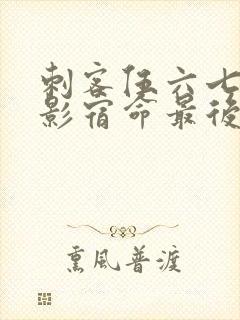 刺客伍六七
影宿命最後
熏風普渡